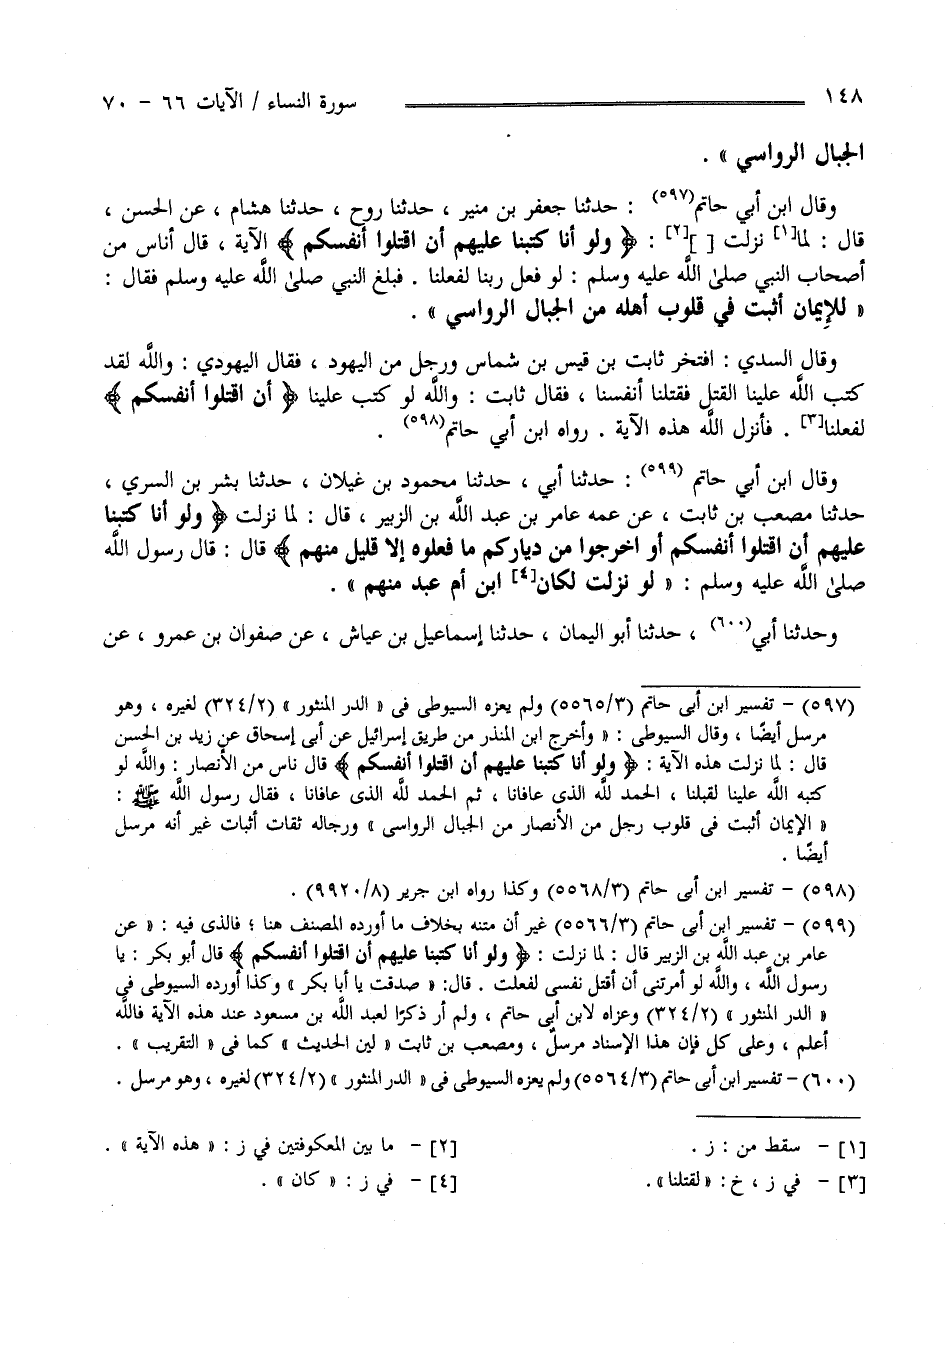 ١٤٨ سورة النساء / الآيات ٦٦ - ٧٠
الجبال الرواسي » .
وقال ابن أبي حاتم(٥٩٧) : حدثنا جعفر بن منير ، حدثنا روح ، حدثنا هشام ، عن الحسن ،
قال : لما[١] نزلت [ ][٢] : ﴿ ولو أنا كتبنا عليهم أن اقتلوا أنفسكم ﴾ الآية ، قال أناس من
أصحاب النبي صلىٰ اللَّه عليه وسلم : لو فعل ربنا لفعلنا . فبلغ النبي صلىٰ اللَّه عليه وسلم فقال :
« للإيمان أثبت في قلوب أهله من الجبال الرواسي » .
وقال السدي : افتخر ثابت بن قيس بن شماس ورجل من اليهود ، فقال اليهودي : واللَّه لقد
كتب اللَّه علينا القتل فقتلنا أنفسنا ، فقال ثابت : واللَّه لو كتب علينا ﴿ أن اقتلوا أنفسكم ﴾
لفعلنا[٣] . فأنزل اللَّه هذه الآية . رواه ابن أبي حاتم(٥٩٨) .
وقال ابن أبي حاتم (٥٩٩) : حدثنا أبي ، حدثنا محمود بن غيلان ، حدثنا بشر بن السري ،
حدثنا مصعب بن ثابت ، عن عمه عامر بن عبد اللَّه بن الزبير ، قال : لما نزلت ﴿ ولو أنا كتبنا
عليهم أن اقتلوا أنفسكم أو اخرجوا من دياركم ما فعلوه إلا قليل منهم ﴾ قال : قال رسول اللَّه
صلىٰ اللَّه عليه وسلم : « لو نزلت لكان[٤] ابن أم عبد منهم » .
وحدثنا أبي(٦٠٠) ، حدثنا أبو اليمان ، حدثنا إسماعيل بن عياش ، عن صفوان بن عمرو ، عن
(٥٩٧) - تفسير ابن أبى حاتم (٥٥٦٥/٣) ولم يعزه السيوطى فى « الدر المنثور » (٣٢٤/٢) لغيره ، وهو
مرسل أيضًا ، وقال السيوطى : « وأخرج ابن المنذر من طريق إسرائيل عن أبى إسحاق عن زيد بن الحسن
قال : لما نزلت هذه الآية : ﴿ ولو أنا كتبنا عليهم أن اقتلوا أنفسكم ﴾ قال ناس من الأنصار : واللَّه لو
كتبه اللَّه علينا لقبلنا ، الحمد للَّه الذى عافانا ، ثم الحمد للَّه الذى عافانا ، فقال رسول اللَّه ﷺ :
« الإيمان أثبت فى قلوب رجل من الأنصار من الجبال الرواسى » ورجاله ثقات أثبات غير أنه مرسل
أيضًا .
(٥٩٨) - تفسير ابن أبى حاتم (٥٥٦٨/٣) وكذا رواه ابن جرير (٩٩٢٠/٨) .
(٥٩٩) - تفسير ابن أبى حاتم (٥٥٦٦/٣) غير أن متنه بخلاف ما أورده المصنف هنا ؛ فالذى فيه : « عن
عامر بن عبد اللَّه بن الزبير قال : لما نزلت : ﴿ ولو أنا كتبنا عليهم أن اقتلوا أنفسكم ﴾ قال أبو بكر : يا
رسول اللَّه ، واللَّه لو أمرتنى أن أقتل نفسى لفعلت . قال: « صدقت يا أبا بكر » وكذا أورده السيوطى فى
« الدر المنثور » (٣٢٤/٢) وعزاه لابن أبى حاتم ، ولم أر ذكرًا لعبد اللَّه بن مسعود عند هذه الآية فاللَّه
أعلم ، وعلى كل فإن هذا الإسناد مرسلٌ ، ومصعب بن ثابت « لين الحديث » كما فى « التقريب » .
(٦٠٠) - تفسير ابن أبى حاتم (٥٥٦٤/٣) ولم يعزه السيوطى فى « الدر المنثور » (٣٢٤/٢) لغيره ، وهو مرسل .
[١] - سقط من : ز . [٢] - ما بين المعكوفتين في ز : « هذه الآية » .
[٣] - في ز ، خ : « لقتلنا » . [٤] - في ز : « كان » .